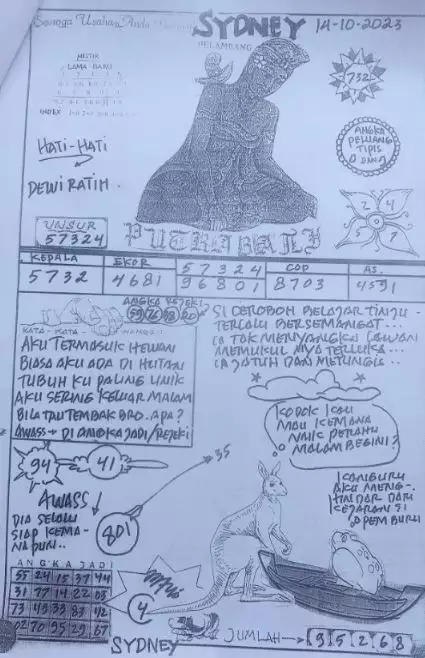 Semoga Usahan Anda
SYDNEY 14-10-2023
PELAMBANG
MISTIK
LAMA BARU
INDEX
732
HATI-HATI
DEWI RATIH.
ANGKA
PELUANG
TIPIS
0 DAN 9
2 4
5 7
UNSUR
57324
PUTRA BALI
KEPALA EKOR 57324 COP AS.
5732 4681 96801 8703 4591
ANGKA REJEKI
KATA - KATA
AKU TERMASUK HEWAN
BIASA AKU ADA DI HUTAN
TUBUH KU PALING UNIK
AKU SERING KELUAR MALAM
BILA TAU TEMBAK BRO. APA?
AWASS → DI ANGKA JADI/REJEKI
SI CEROBOH BELAJAR TINJU -
TERLALU BERSEMANGAT...
IA TAK MENYANGKA LAWAN
MEMUKUL NYA TERLUKA...
IA JATUH DAN
KODOK KAU
MAU KEMANA
NAIK PERAHU
MALAM BEGINI?
94 41
35
AWASS
DIA SELALU
SIAP KEMA-
NAPUN..
801
KANGURU
AKU MENG-
HINDAR DARI
KEJARAN SI
PEMBURU
ANGKA JADI
55 24 15 37 44
31 77 14 22 03
73 43 33 83 42
02 70 95 29 67
4
SYDNEY
JUMLAH → 9 5 2 6 8